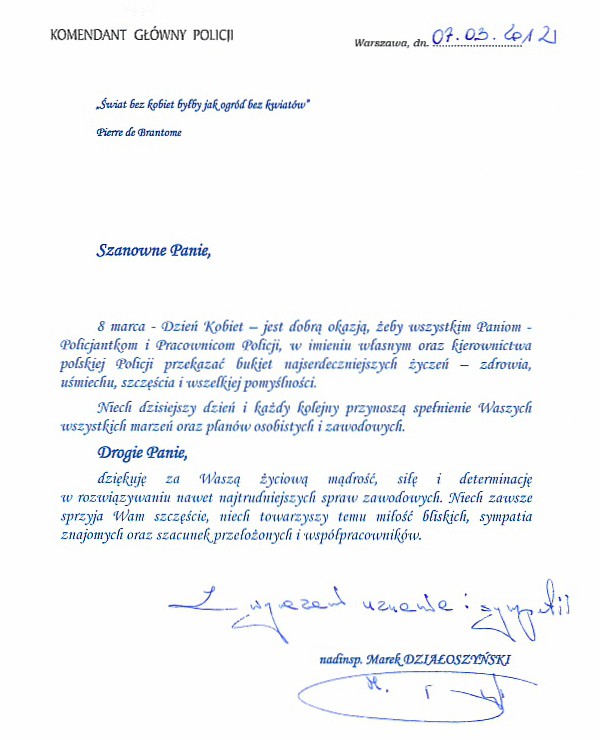 KOMENDANT GŁÓWNY POLICJI
Warszawa, dn. 07.03.2012
„Świat bez kobiet byłby jak ogród bez kwiatów”
Pierre de Brantome
Szanowne Panie,
8 marca - Dzień Kobiet – jest dobrą okazją, żeby wszystkim Paniom -
Policjantkom i Pracownicom Policji, w imieniu własnym oraz kierownictwa
polskiej Policji przekazać bukiet najserdeczniejszych życzeń – zdrowia,
uśmiechu, szczęścia i wszelkiej pomyślności.
Niech dzisiejszy dzień i każdy kolejny przynoszą spełnienie Waszych
wszystkich marzeń oraz planów osobistych i zawodowych.
Drogie Panie,
dziękuję za Waszą życiową mądrość, siłę i determinację
w rozwiązywaniu nawet najtrudniejszych spraw zawodowych. Niech zawsze
sprzyja Wam szczęście, niech towarzyszy temu miłość bliskich, sympatia
znajomych oraz szacunek przełożonych i współpracowników.
Z wyrazami uznania i sympatii
nadinsp. Marek DZIAŁOSZYŃSKI